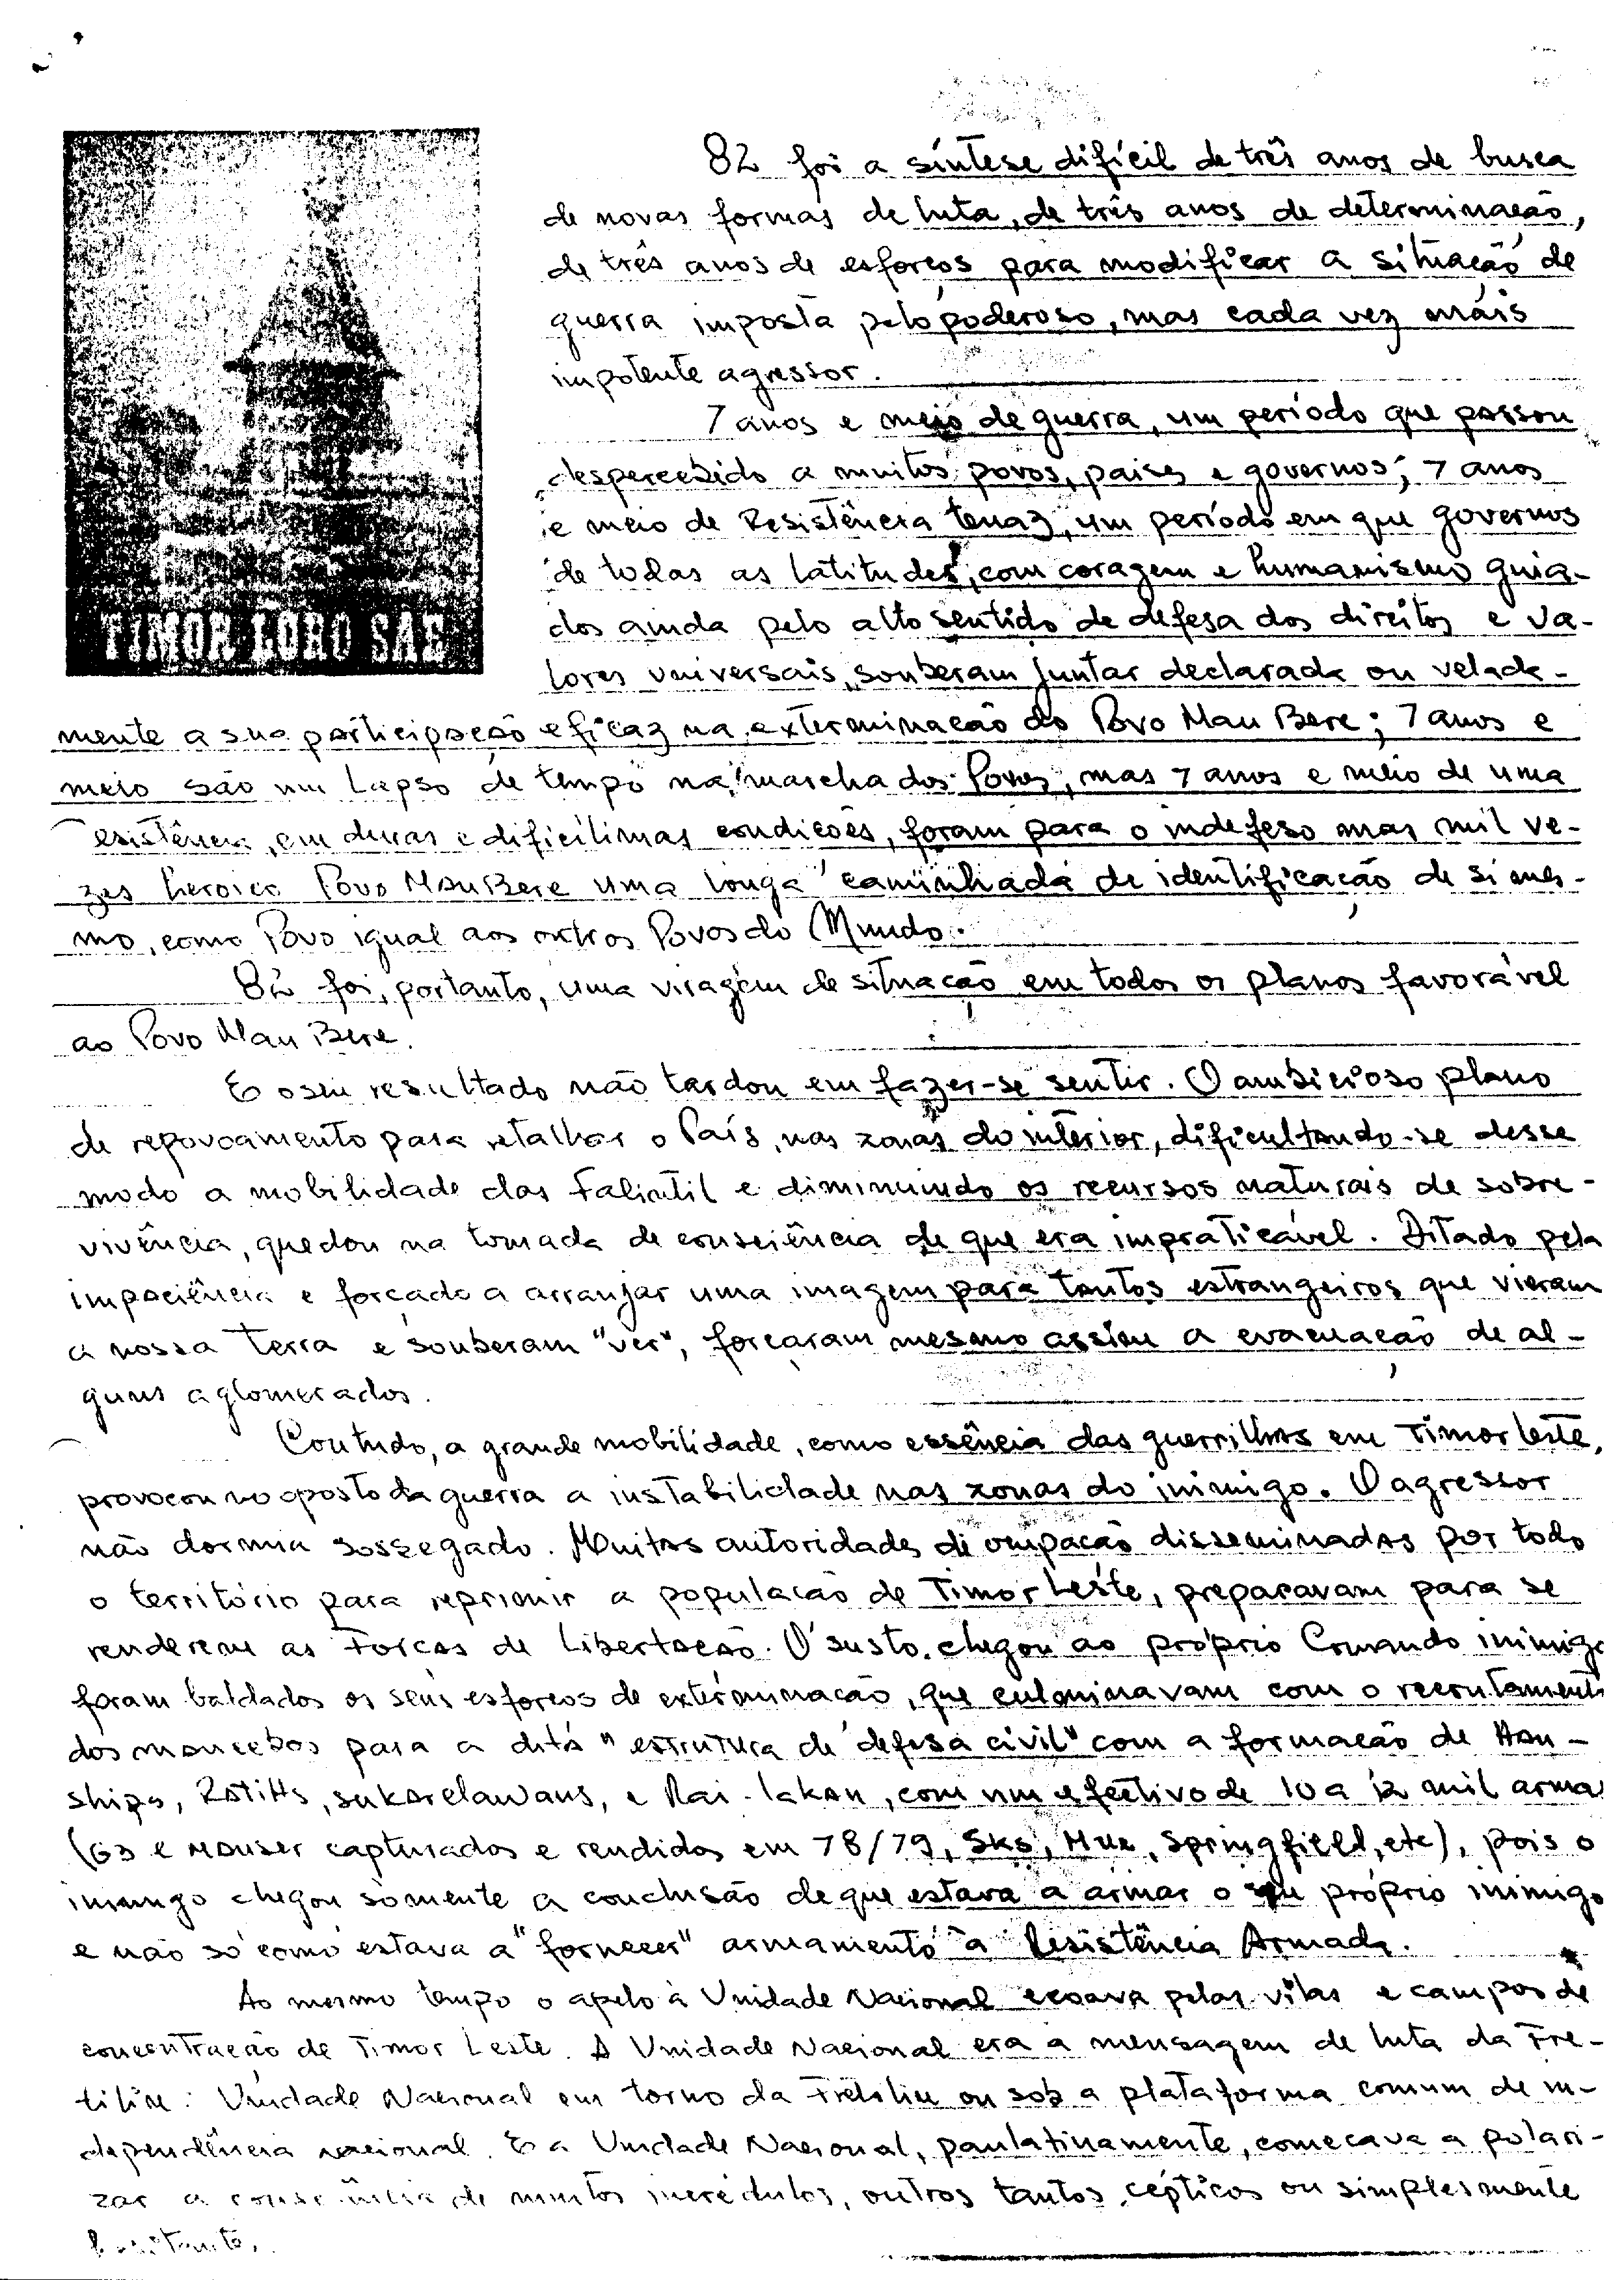 TIMOR LORO SAE
82 foi a síntese difícil de três anos de busca
de novas formas de luta, de três anos de determinação,
de três anos de esforços para modificar a situação de
guerra imposta pelo poderoso, mas cada vez mais
impotente agressor.
7 anos e meio de guerra, um período que passou
despercebido a muitos povos, países e governos; 7 anos
e meio de Resistência tenaz, um período em que governos
de todas as latitudes, com coragem e humanismo guia-
dos ainda pelo alto sentido de defesa dos direitos e va-
lores universais, souberam juntar declarada ou velada-
mente a sua participação eficaz na exterminação do Povo MauBere; 7 anos e
meio são um lapso de tempo na marcha dos Povos, mas 7 anos e meio de uma
existência, em duras e dificílimas condições, foram para o indefeso mas mil ve-
zes heroico Povo MauBere uma longa caminhada de identificação de si mes-
mo, como Povo igual aos outros Povos do Mundo.
82 foi, portanto, uma viragem de situação em todos os planos favorável
ao Povo MauBere.
E o seu resultado não tardou em fazer-se sentir. O ambicioso plano
de repovoamento para retalhar o País, nas zonas do interior, dificultando-se desse
modo a mobilidade das Falintil e diminuindo os recursos naturais de sobre-
vivência, quedou na tomada de consciência de que era impraticável. Ditado pela
impaciência e forçado a arranjar uma imagem para tantos estrangeiros que vieram
a nossa Terra e souberam "ver", forçaram mesmo assim a evacuação de al-
guns aglomerados.
Contudo, a grande mobilidade, como essência das guerrilhas em Timor Leste,
provocou no oposto da guerra a instabilidade nas zonas do inimigo. O agressor
não dormia sossegado. Muitas autoridades de ocupação disseminadas por todo
o território para reprimir a população de Timor Leste, preparavam para se
renderem as Forças de Libertação. O susto chegou ao próprio Comando inimigo
foram baldados os seus esforços de exterminação, que culminavam com o recrutament
dos mancebos para a dita "estrutura de defesa civil" com a formação de Han-
ships, Ratihs, sukarelawans, e Rai-lakan, com um efectivo de 10 a 12 mil arma
(G3 e Mauser capturados e rendidos em 78/79, Sks, , Springfield, etc), pois o
inimigo chegou somente a conclusão de que estava a armar o seu próprio inimigo
e não só como estava a "fornecer" armamento à Resistência Armada.
Ao mesmo tempo o apelo à Unidade Nacional ecoava pelas vilas e campos de
concentração de Timor Leste. A Unidade Nacional era a mensagem de luta da Fre-
tilin: Unidade Nacional em torno da Fretilin ou sob a plataforma comum de in-
dependência nacional. E a Unidade Nacional, paulatinamente, começava a polari-
zar a consciência de muitos incrédulos, outros tantos cépticos ou simplesmente